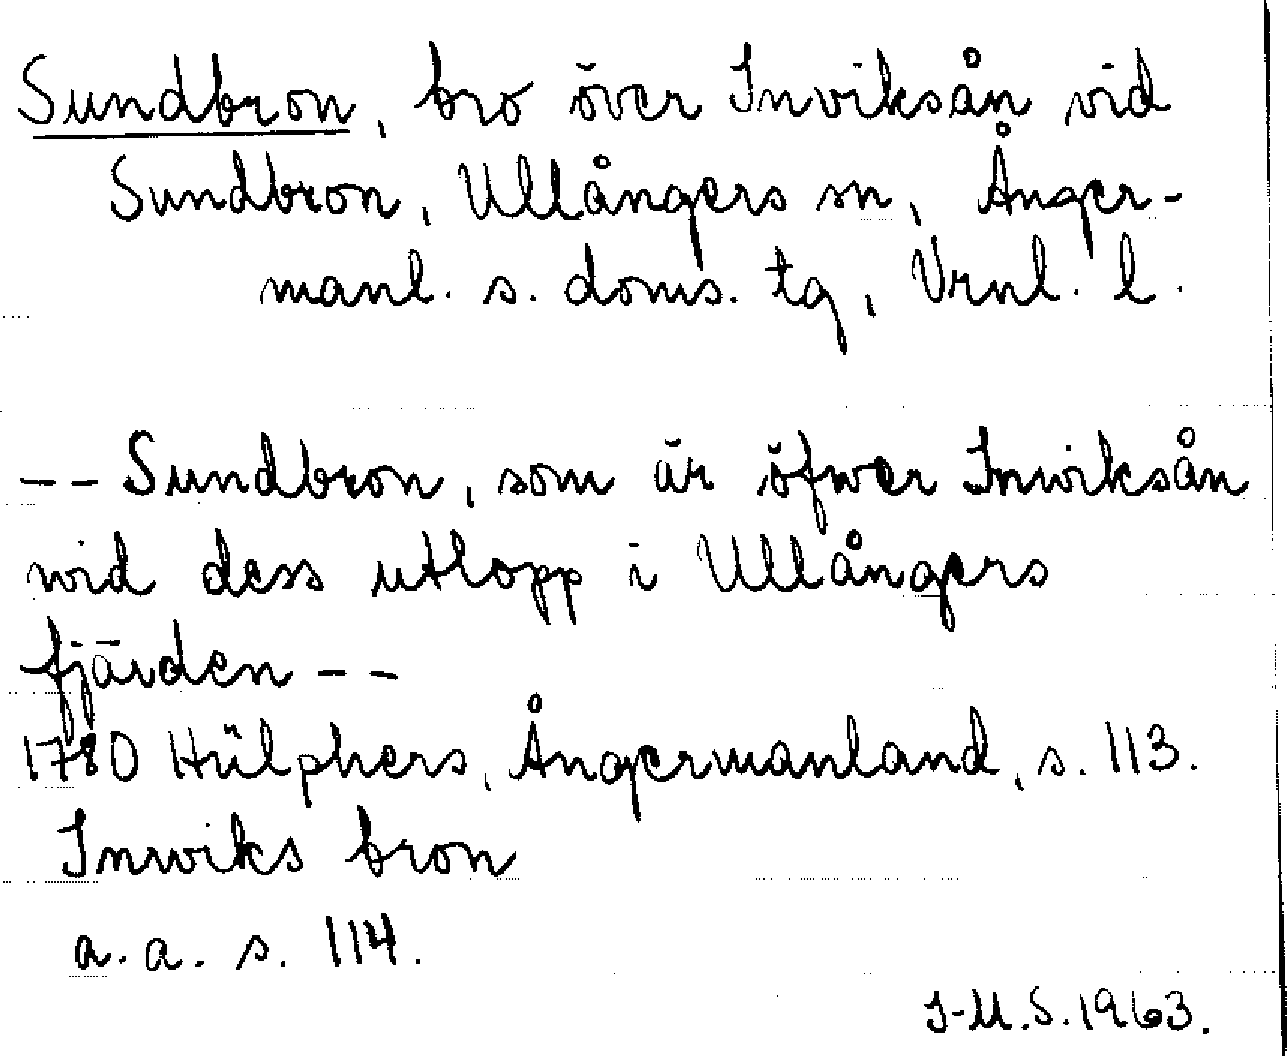 Sundbron, bro över Inviksån vid
Sundbron, Ullångers sn, Ånger-
manl. s. doms. tg, Vrnl. l.
-- Sundbron, som är öfwer Inwiksån
wid dess utlopp i Ullångers
fjärden --
1780 Hülphers, Ångermanland, s. 113.
Inwiks bron
a. a. s. 114.
I-M.S. 1963.